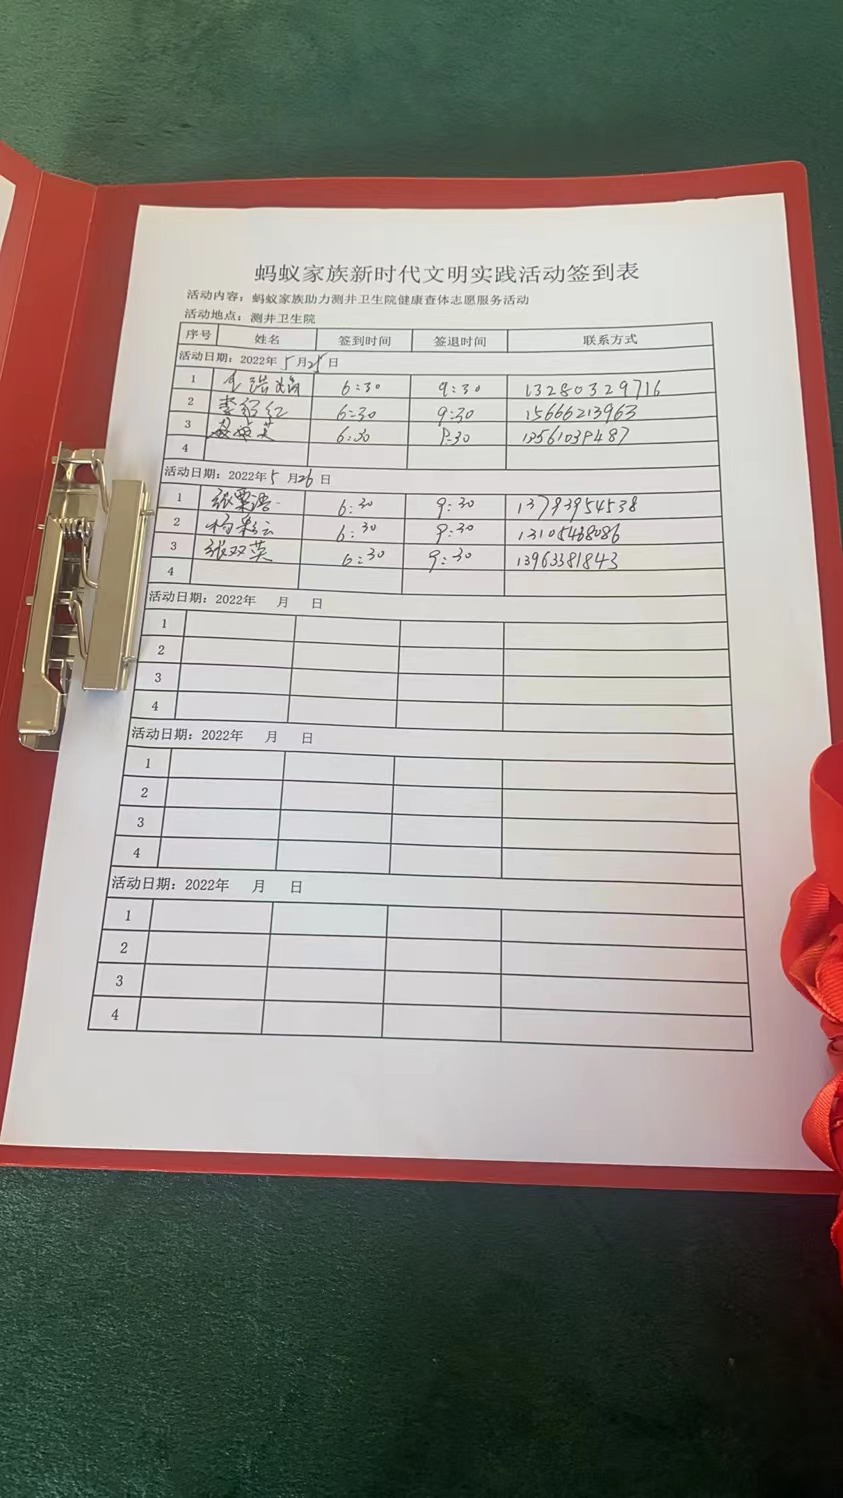 蚂蚁家族新时代文明实践活动签到表
活动内容：蚂蚁家族助力测井卫生院健康查体志愿服务活动
活动地点：测井卫生院
序号 姓名 签到时间 签退时间 联系方式
活动日期：2022年5月25日
1 6:30 9:30 13280329716
2 李红 6:30 9:30 15666213963
3 英 6:30 9:30 13561039487
4
活动日期：2022年5月26日
1 张 6:30 9:30 13793954538
2 杨彩云 6:30 9:30 13105468086
3 张双英 6:30 9:30 13963381843
4
活动日期：2022年 月 日
1
2
3
4
活动日期：2022年 月 日
1
2
3
4
活动日期：2022年 月 日
1
2
3
4